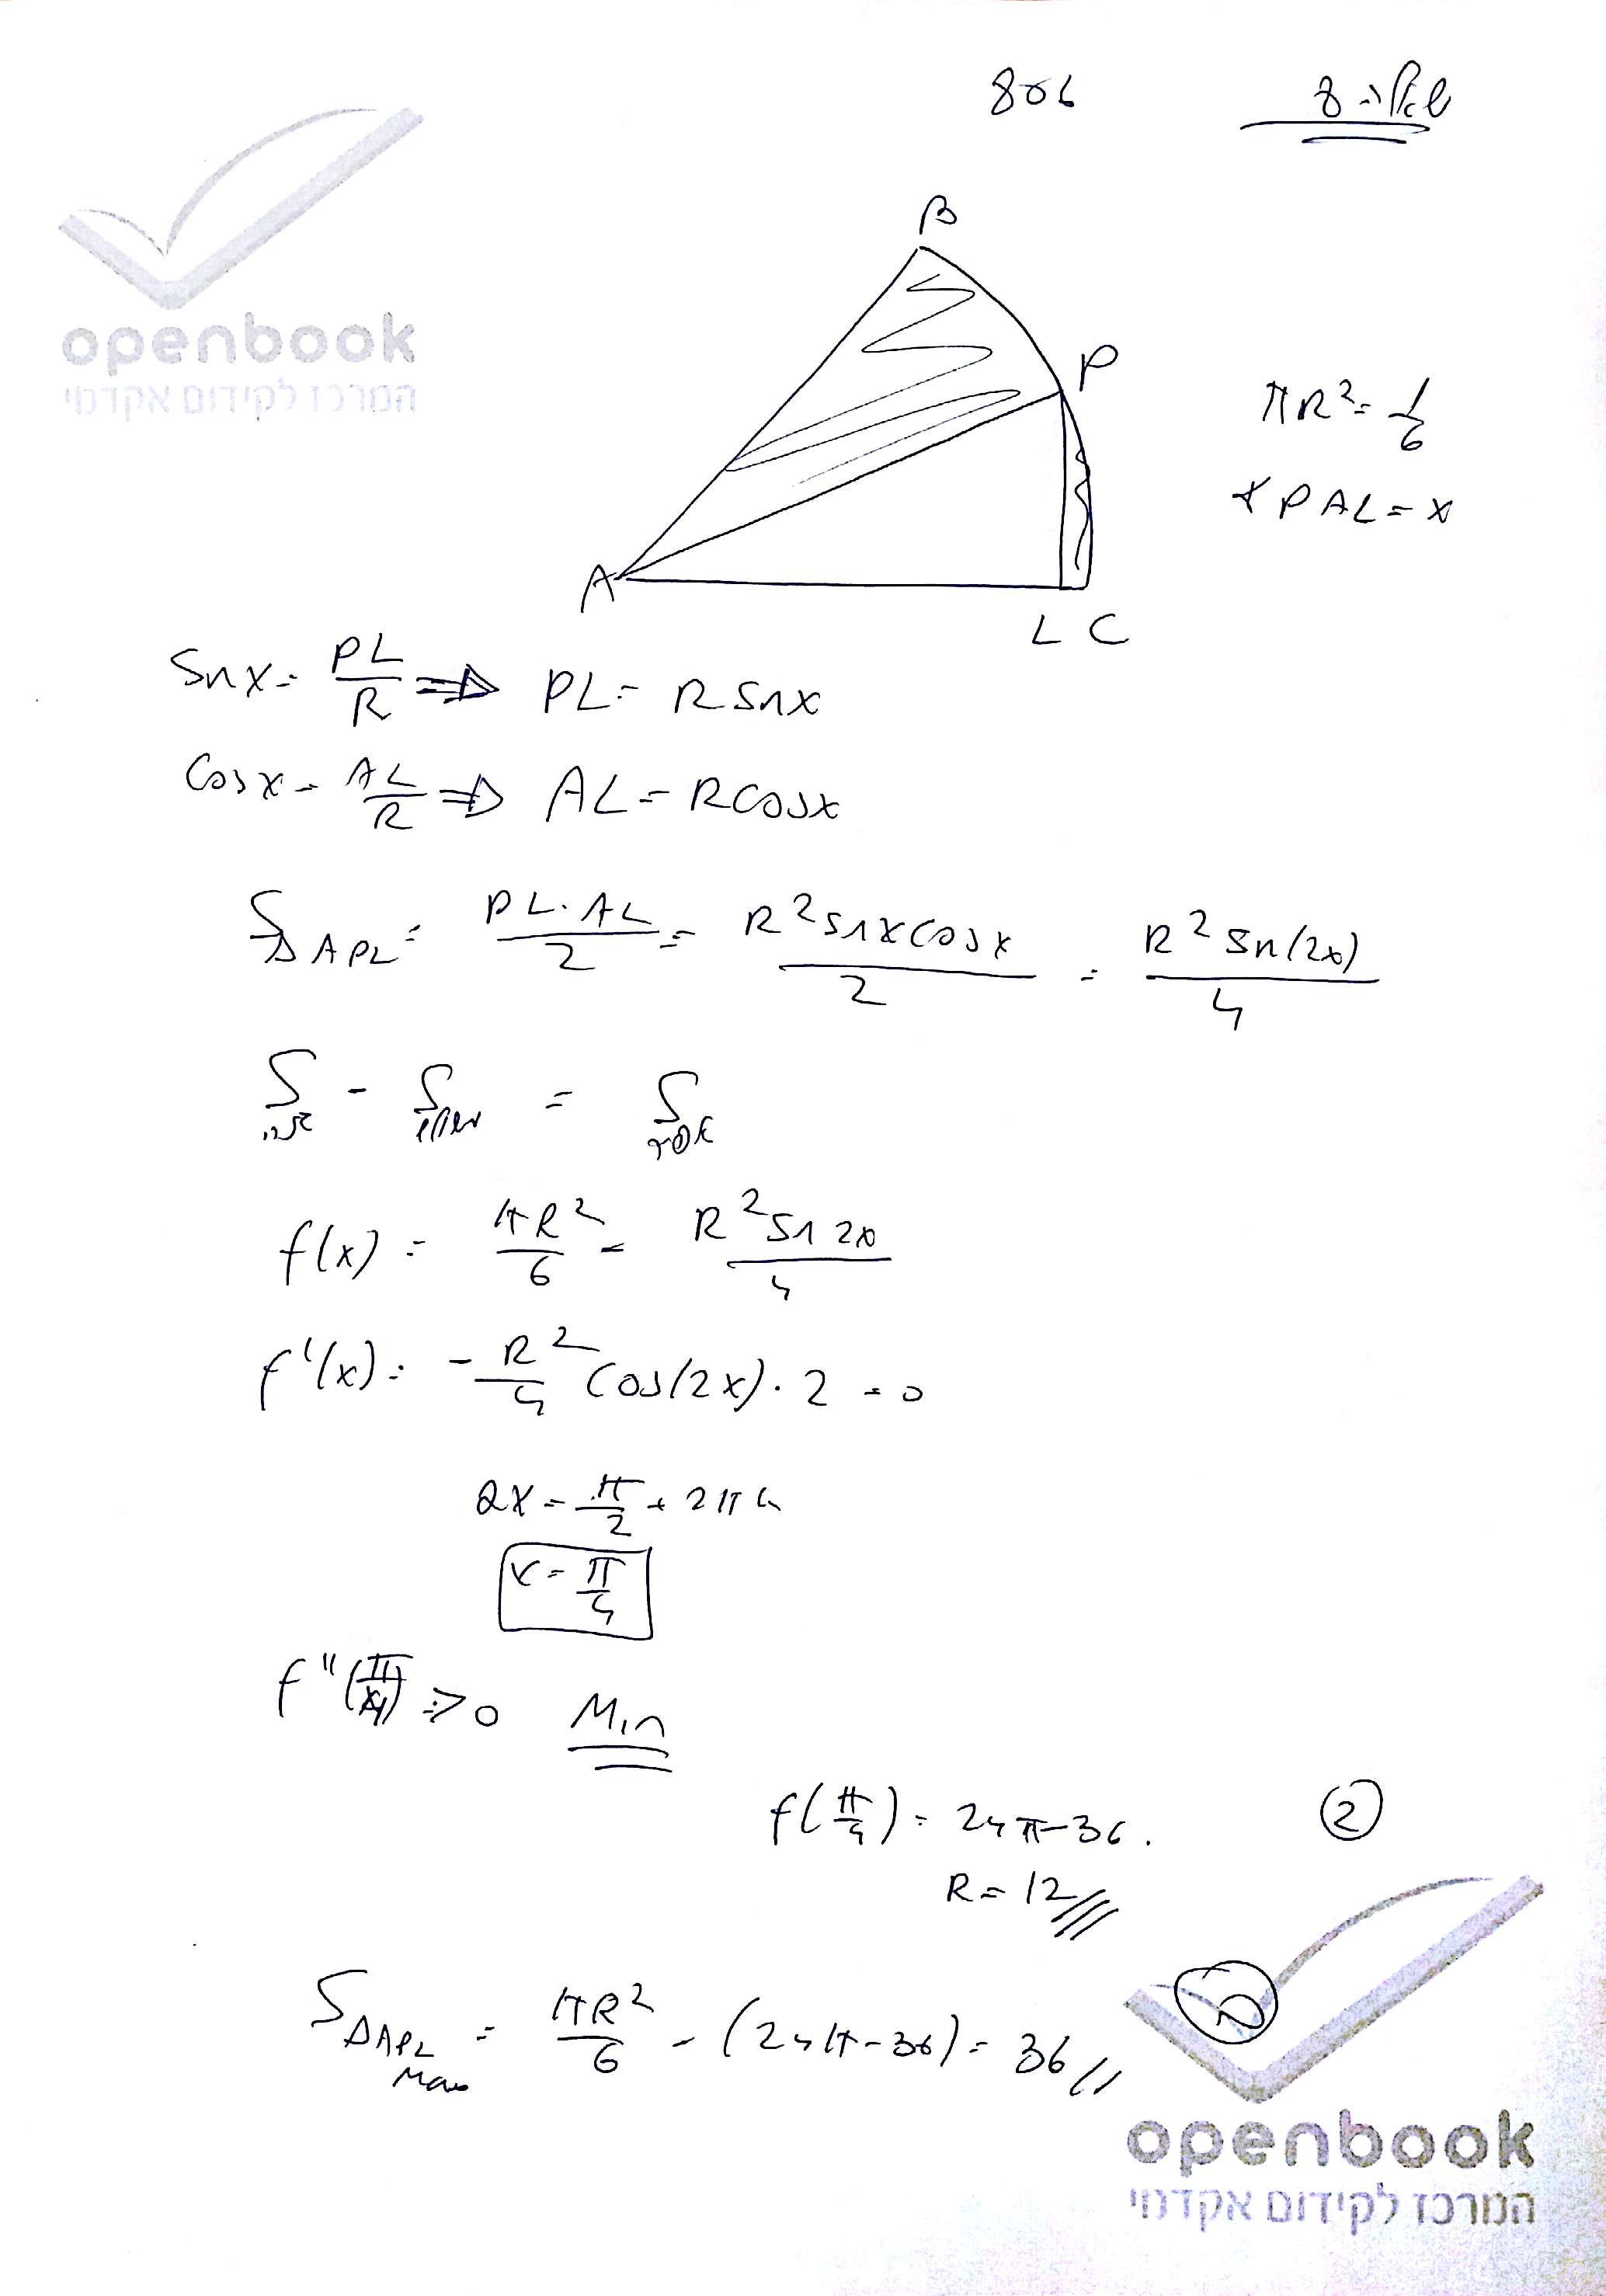 806 שאלה 8
openbook
המרכז לקידום אקדמי
B
P
A
L C
πR² = 1/6
∢PAL = x
Sinx = PL/R ⇒ PL = R sinx
Cosx = AL/R ⇒ AL = R cosx
S△APL = PL·AL/2 = R² sinx cosx/2 = R² sin(2x)/4
S גזרה - S משולש = S אפור
f(x) = πR²/6 - R² sin2x/4
f'(x) = -R²/4 cos(2x)·2 = 0
2x = π/2 + 2πk
x = π/4
f''(π/4) => 0 Min
f(π/4) = 24π-36. ②
R = 12
S△APL Max = πR²/6 - (24π-36) = 36
openbook
המרכז לקידום אקדמי